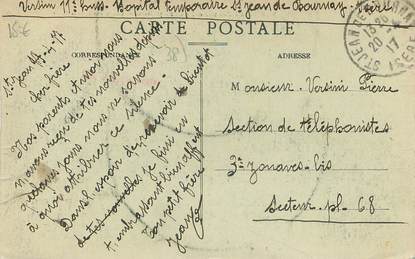 Versini 11e Huss- Hopital Temporaire St Jean de Bournay - Isère
CARTE POSTALE
CORRESPONDANCE
ADRESSE
15€
38
St Jean le 19-4-17
Cher frère
Nos parents et moi nous
n'avons reçu de tes nouvelles depuis
quelques jours nous ne savons
à quoi attribuer ce silence.
Dans l'espoir d'en avoir bientôt
de tes nouvelles je finis en
t'embrassant bien affect
Ton petit frère
Jean
Monsieur Versini Pierre
Section de téléphonistes
3e Zouaves-bis
Secteur-pl-68
ST JEAN DE BOURNAY
13 25
20 -4
17
ISERE